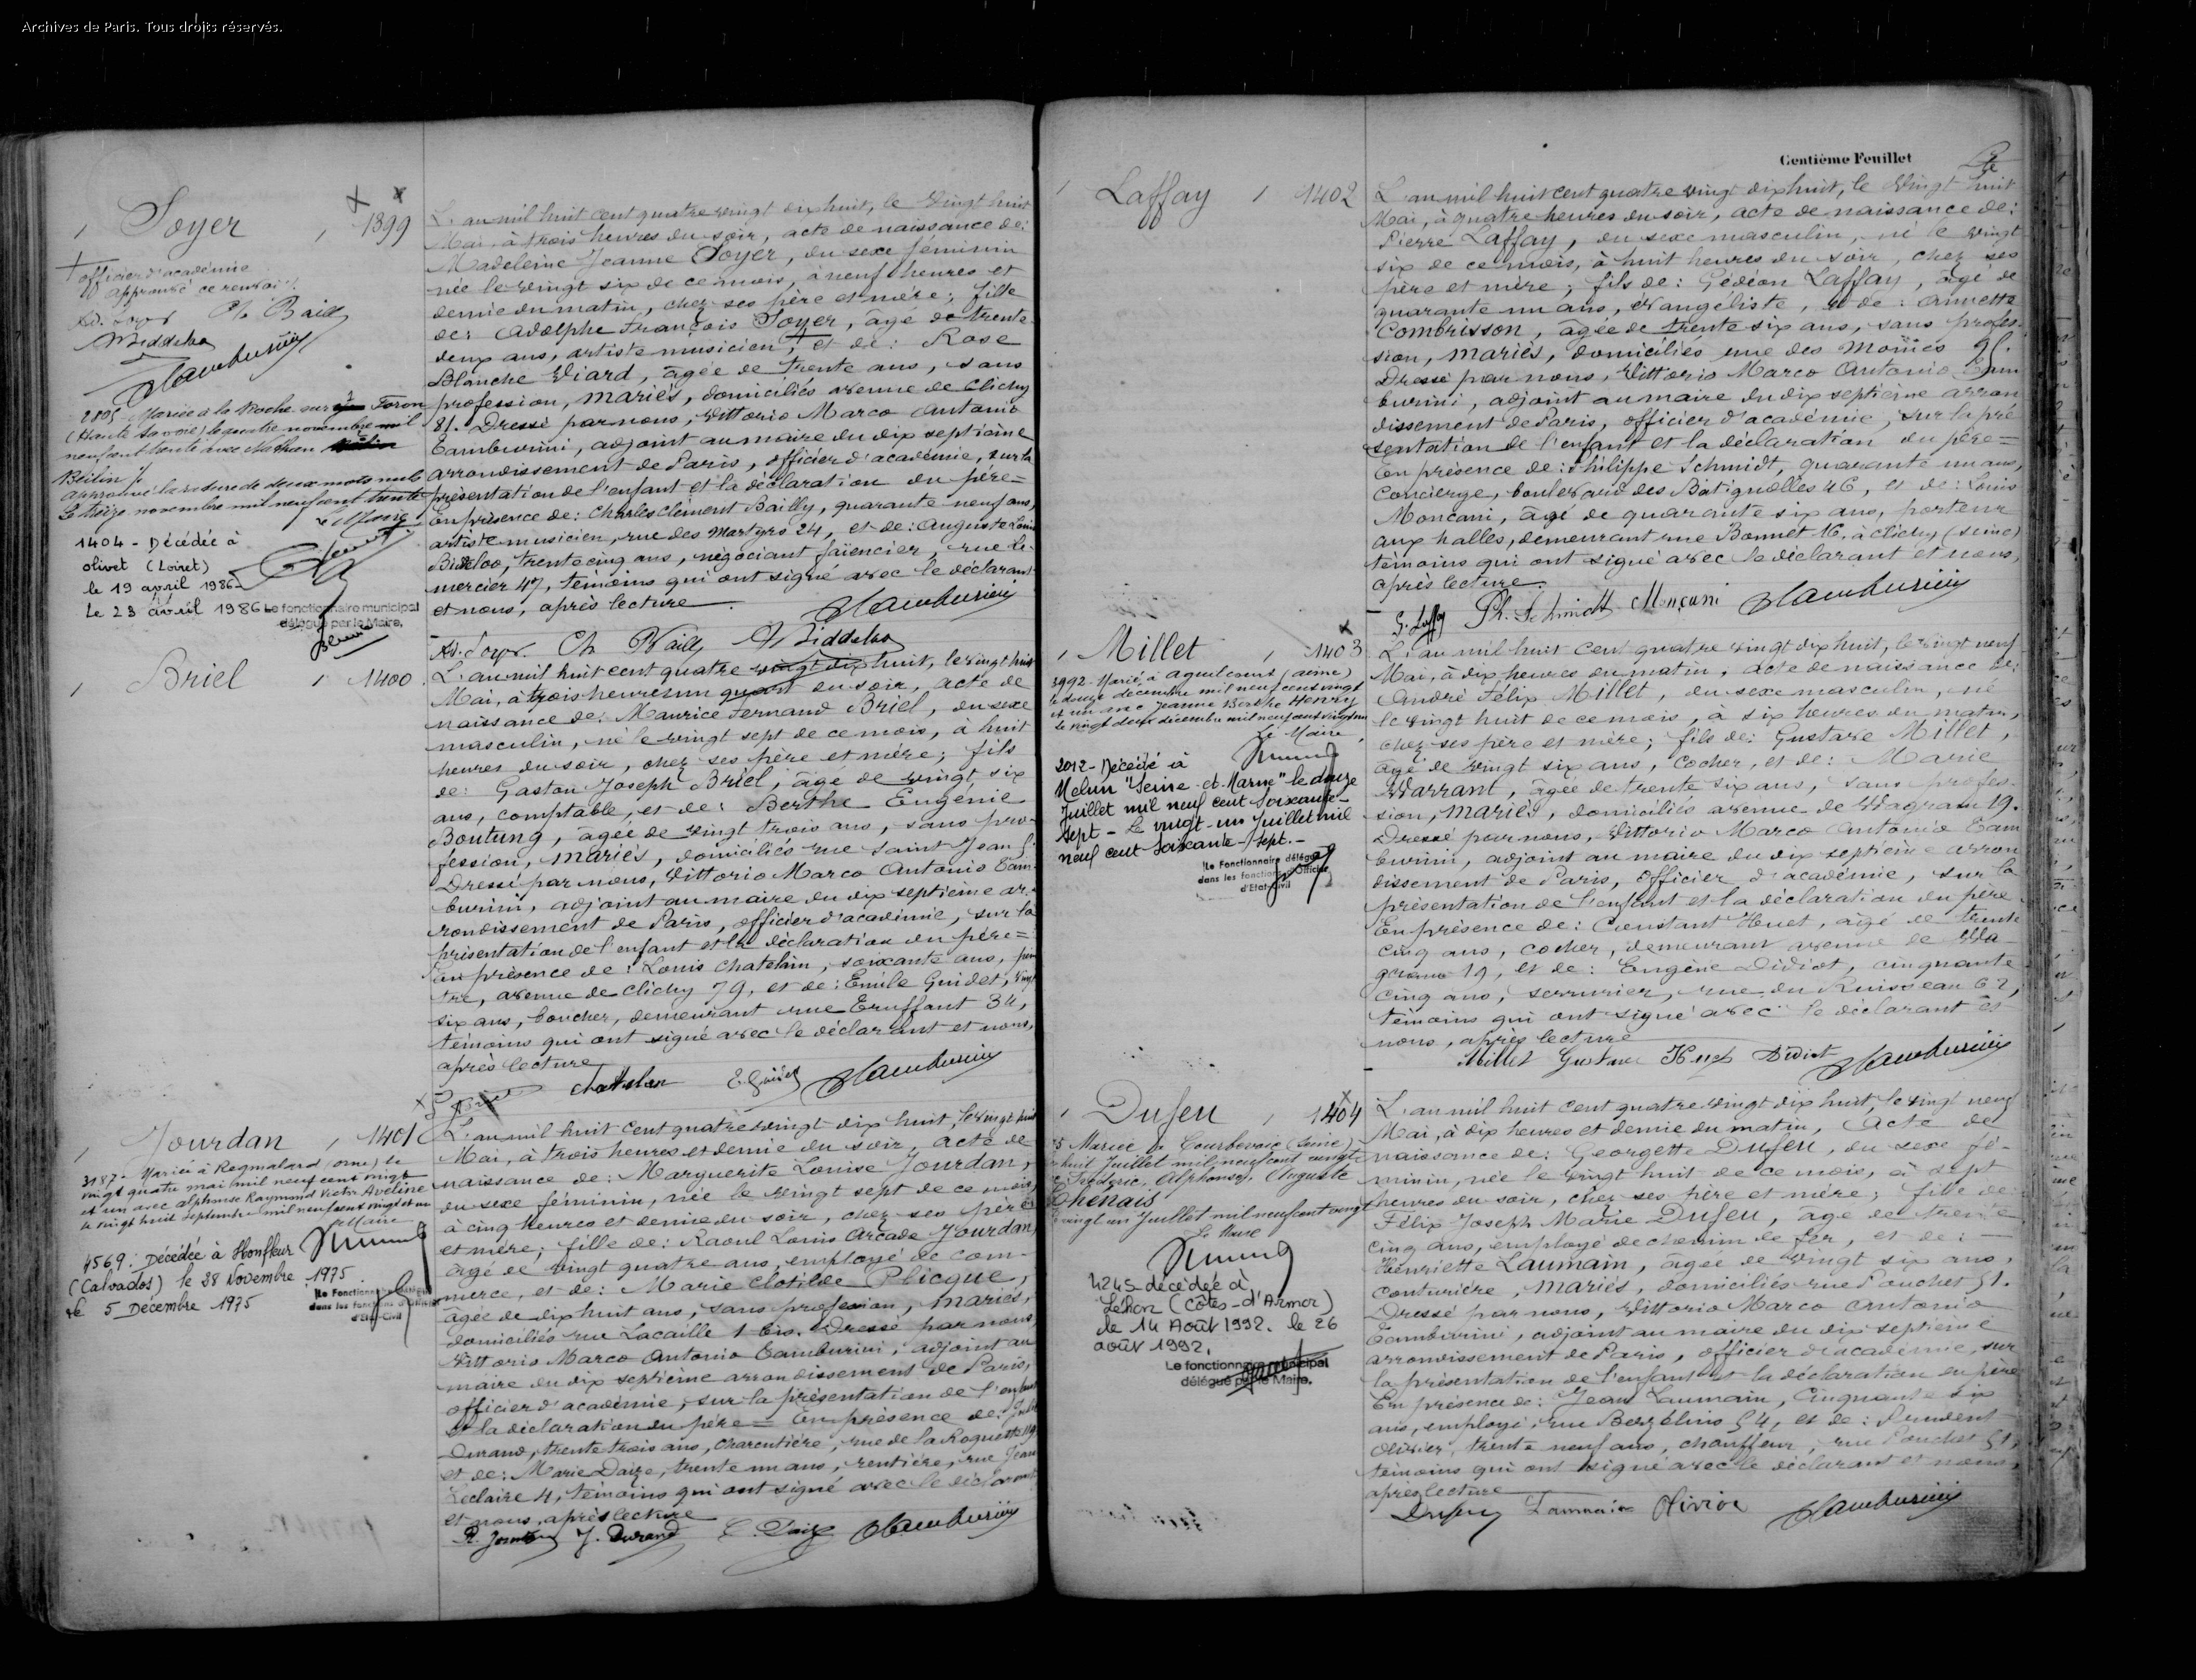 Archives de Paris. Tous droits réservés.
Soyer 1399
officier d'académie
approuvé ce renvoi
Ad. Soyer Ch. Bailly
2805 Mariée à la Roche sur Foron
(Haute Savoie) le quatre novembre mil
neuf cent trente avec Nathan
Bétin
approuvé la rature de deux mots nuls
Le treize novembre mil neuf cent trente
1404 - Décédée à
olivet (Loiret)
le 19 avril 1986
Le 23 avril 1986 Le fonctionnaire municipal
délégué par le Maire,
L'an mil huit cent quatre vingt dix huit, le vingt huit
Mai, à trois heures du soir, acte de naissance de:
Madeleine Jeanne Soyer, du sexe féminin
née le vingt six de ce mois, à neuf heures et
demie du matin, chez ses père et mère; fille
de: Adolphe François Soyer, âgé de trente
deux ans, artiste musicien, et de: Rose
Blanche Viard, âgée de trente ans, sans
profession, mariés, domiciliés avenue de Clichy
81. Dressé par nous, Vittorio Marco Antonio
Tamburini, adjoint au maire du dix septième
arrondissement de Paris, officier d'académie, sur la
présentation de l'enfant et la déclaration du père =
En présence de: Charles Clément Bailly, quarante neuf ans,
artiste musicien, rue des Martyrs 24, et de: Auguste Louis
trente cinq ans, négociant faïencier, rue Le-
mercier 47, témoins qui ont signé avec le déclarant
et nous, après lecture.
Ad. Soyer Ch Bailly
Briel 1400
L'an mil huit cent quatre vingt dix huit, le vingt huit
Mai, à trois heures un quart du soir, acte de
naissance de: Maurice Fernand Briel, du sexe
masculin, né le vingt sept de ce mois, à huit
heures du soir, chez ses père et mère; fils
de: Gaston Joseph Briel, âgé de vingt six
ans, comptable, et de: Berthe Eugénie
Boutung, âgée de vingt trois ans, sans pro-
fession, mariés, domiciliés rue Saint Jean 5.
Dressé par nous, Vittorio Marco Antonio Tam-
burini, adjoint au maire du dix septième ar-
rondissement de Paris, officier d'académie, sur la
présentation de l'enfant et la déclaration du père =
En présence de: Louis Chatelain, soixante ans, pein
tre, avenue de Clichy 79, et de: Emile Guidet, vingt
six ans, boucher, demeurant rue Truffaut 34,
témoins qui ont signé avec le déclarant et nous,
après lecture
Chatelain E. Guidet
Jourdan 1401
3187 - Mariée à Regmalard (orne) le
vingt quatre mai mil neuf cent vingt
et un avec Alphonse Raymond Victor Aveline
le vingt huit septembre mil neuf cent vingt et un
Le Maire
4569: Décédée à Honfleur
(Calvados) le 28 Novembre 1975
Le 5 Décembre 1975
Le Fonctionnaire délégué
dans les fonctions d'Officier
d'Etat-Civil
L'an mil huit cent quatre vingt dix huit, le vingt huit
Mai, à trois heures et demie du soir, acte de
naissance de: Marguerite Louise Jourdan,
du sexe féminin, née le vingt sept de ce mois
à cinq heures et demie du soir, chez ses père
et mère; fille de: Raoul Louis Arcade Jourdan
âgé de vingt quatre ans, employé de com-
merce, et de: Marie Clotilde Plicque,
âgée de dix huit ans, sans profession, mariés,
domiciliés rue Lacaille 1 bis. Dressé par nous
Vittorio Marco Antonio Tamburini, adjoint au
maire du dix septième arrondissement de Paris,
officier d'académie, sur la présentation de l'enfant
et la déclaration du père = En présence de:
Durand, trente trois ans, charentière, rue de la Roquette
et de: Marie Daize, trente un ans, rentière, rue Jean
Leclaire 4, témoins qui ont signé avec le déclarant
et nous, après lecture
J. Durand
Centième Feuillet
Laffay 1402
L'an mil huit cent quatre vingt dix huit, le vingt huit
Mai, à quatre heures du soir, acte de naissance de:
Pierre Laffay, du sexe masculin, né le vingt
six de ce mois, à huit heures du soir, chez ses
père et mère; fils de: Gédéon Laffay, âgé de
quarante un ans, évangéliste, et de: Annette
Combrisson, âgée de trente six ans, sans profes-
sion, mariés, domiciliés rue des Moines 95.
Dressé par nous, Vittorio Marco Antonio Tam
burini, adjoint au maire du dix septième arron
dissement de Paris, officier d'académie, sur la pré
sentation de l'enfant et la déclaration du père =
En présence de: Philippe Schmidt, quarante un ans,
concierge, boulevard des Batignolles 46, et de: Louis
Monçani, âgé de quarante six ans, porteur
aux halles, demeurant rue Bonnet 16, à Clichy (Seine)
témoins qui ont signé avec le déclarant et nous,
après lecture.
G. Laffay Ph. Schmidt Monçani
Millet 1403
3992 - Marié à Aguilcourt (aisne)
le douze décembre mil neuf cent vingt
et un avec Jeanne Berthe Henry
le vingt deux décembre mil neuf cent vingt un
Le Maire
2012 - Décédé à
Melun "Seine-et-Marne" le douze
Juillet mil neuf cent soixante-
sept - Le vingt-un juillet mil
neuf cent soixante-sept. -
Le Fonctionnaire délégué
dans les fonctions d'Officier
d'Etat-Civil
L'an mil huit cent quatre vingt dix huit, le vingt neuf
Mai, à dix heures du matin, acte de naissance de:
André Félix Millet, du sexe masculin, né
le vingt huit de ce mois, à six heures du matin,
chez ses père et mère; fils de: Gustave Millet,
âgé de vingt six ans, cocher, et de: Marie
Warrant, âgée de trente six ans, sans profes-
sion, mariés, domiciliés avenue de Wagram 19.
Dressé par nous, Vittorio Marco Antonio Tam
burini, adjoint au maire du dix septième arron
dissement de Paris, officier d'académie, sur la
présentation de l'enfant et la déclaration du père
En présence de: Constant Huet, âgé de trente
cinq ans, cocher, demeurant avenue de Wa-
gram 19, et de: Eugène Didiot, cinquante
cinq ans, serrurier, rue du Ruisseau 62,
témoins qui ont signé avec le déclarant et
nous, après lecture
Millet Gustave Huet Didiot
Dufeu 1404
Mariée à Courbevoie (Seine)
huit juillet mil neuf cent vingt
Frédéric, Alphonse, Auguste
Chenais
vingt un Juillet mil neuf cent vingt
Le Maire
4245 - décédée à
Léhon (Côtes-d'Armor)
le 14 Août 1992. le 26
août 1992.
Le fonctionnaire municipal
délégué par le Maire,
L'an mil huit cent quatre vingt dix huit, le vingt neuf
Mai, à dix heures et demie du matin, Acte de
naissance de: Georgette Dufeu, du sexe fé-
minin, née le vingt huit de ce mois, à sept
heures du soir, chez ses père et mère; fille de
Félix Joseph Marie Dufeu, âgé de trente
cinq ans, employé de chemin de fer, et de: -
Henriette Laumain, âgée de vingt six ans,
couturière, mariés, domiciliés rue Pouchet 51.
Dressé par nous, Vittorio Marco Antonio
Tamburini, adjoint au maire du dix septième
arrondissement de Paris, officier d'académie, sur
la présentation de l'enfant et la déclaration du père
En présence de: Jean Laumain, cinquante six
ans, employé, rue Berzélius 54, et de: Prudent
Olivier, trente neuf ans, chauffeur, rue Pouchet 51,
témoins qui ont signé avec le déclarant et nous,
après lecture
Dufeu Laumain Olivier